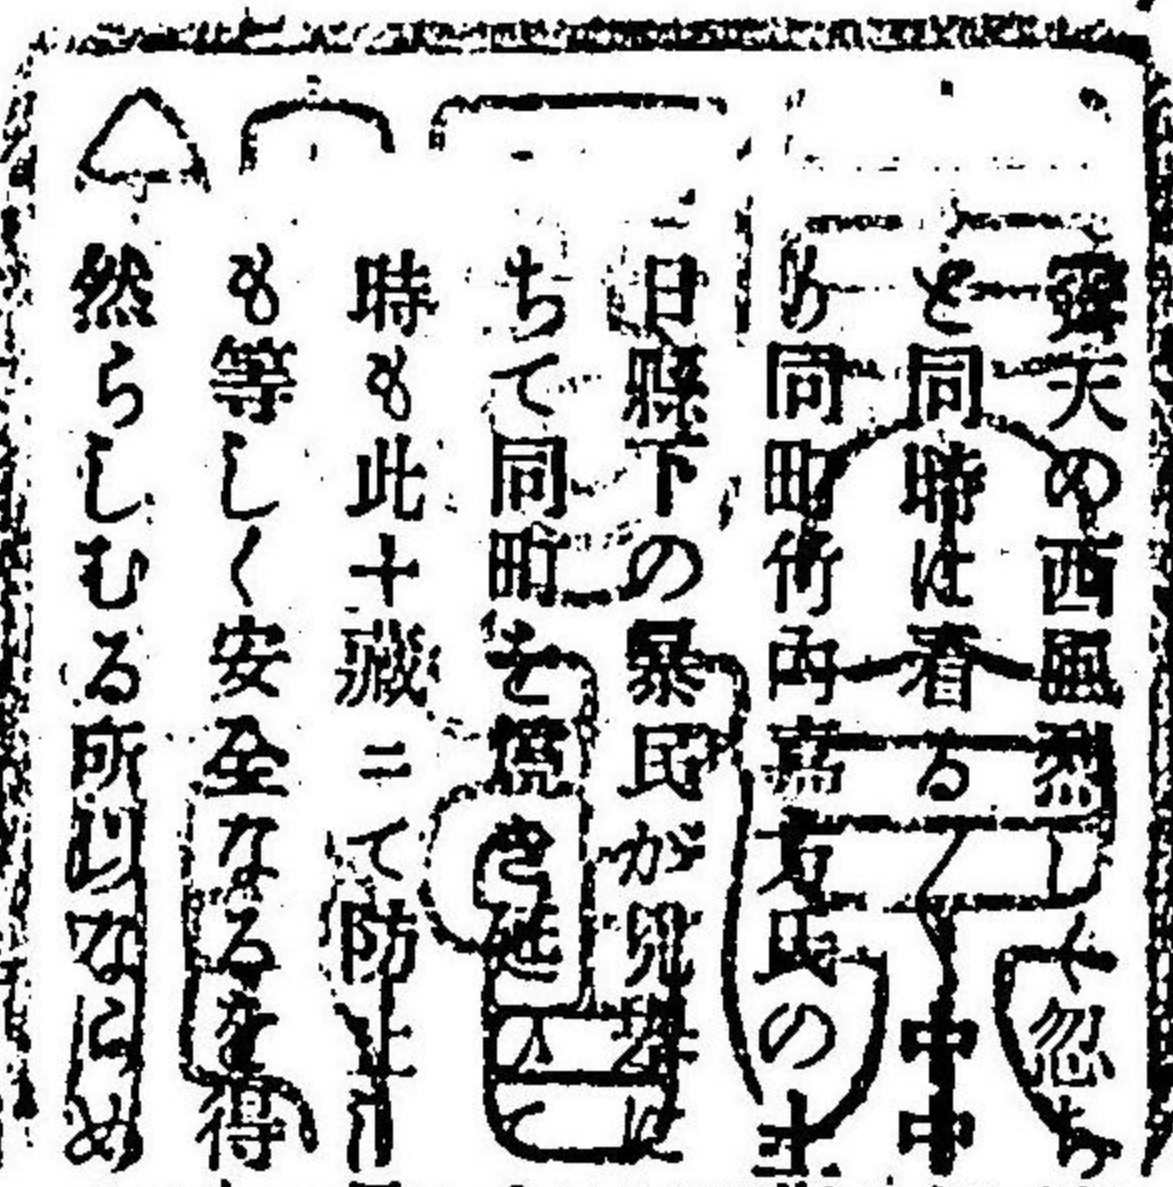 天の西風烈しく忽ち
と同時は看る中中
り同町竹内嘉右氏の土
日縣下の暴民が兇挙に
ちて同町を焼き延ひて
時も此十蔵ニて防止
も等しく安全なるを得
然らしむる所以なにめ